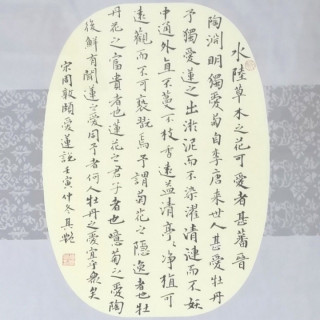 水陸草木之花可愛者甚蕃晉
陶淵明獨愛菊自李唐来世人甚愛牡丹
予獨愛蓮之出淤泥而不染濯清漣而不妖
中通外直不蔓不枝香遠益清亭亭净植可
遠觀而不可褻翫焉予謂菊花之隱逸者也牡
丹花之富貴者也蓮花之君子者也噫菊之愛陶
後鮮有聞蓮之愛同予者何人牡丹之愛宜乎衆矣
宋周敦頤愛蓮説壬寅仲冬